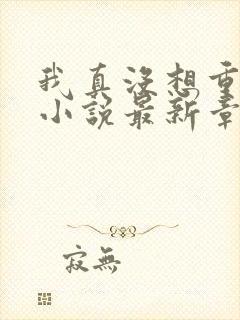 我真没想重
小说最新章
寂無